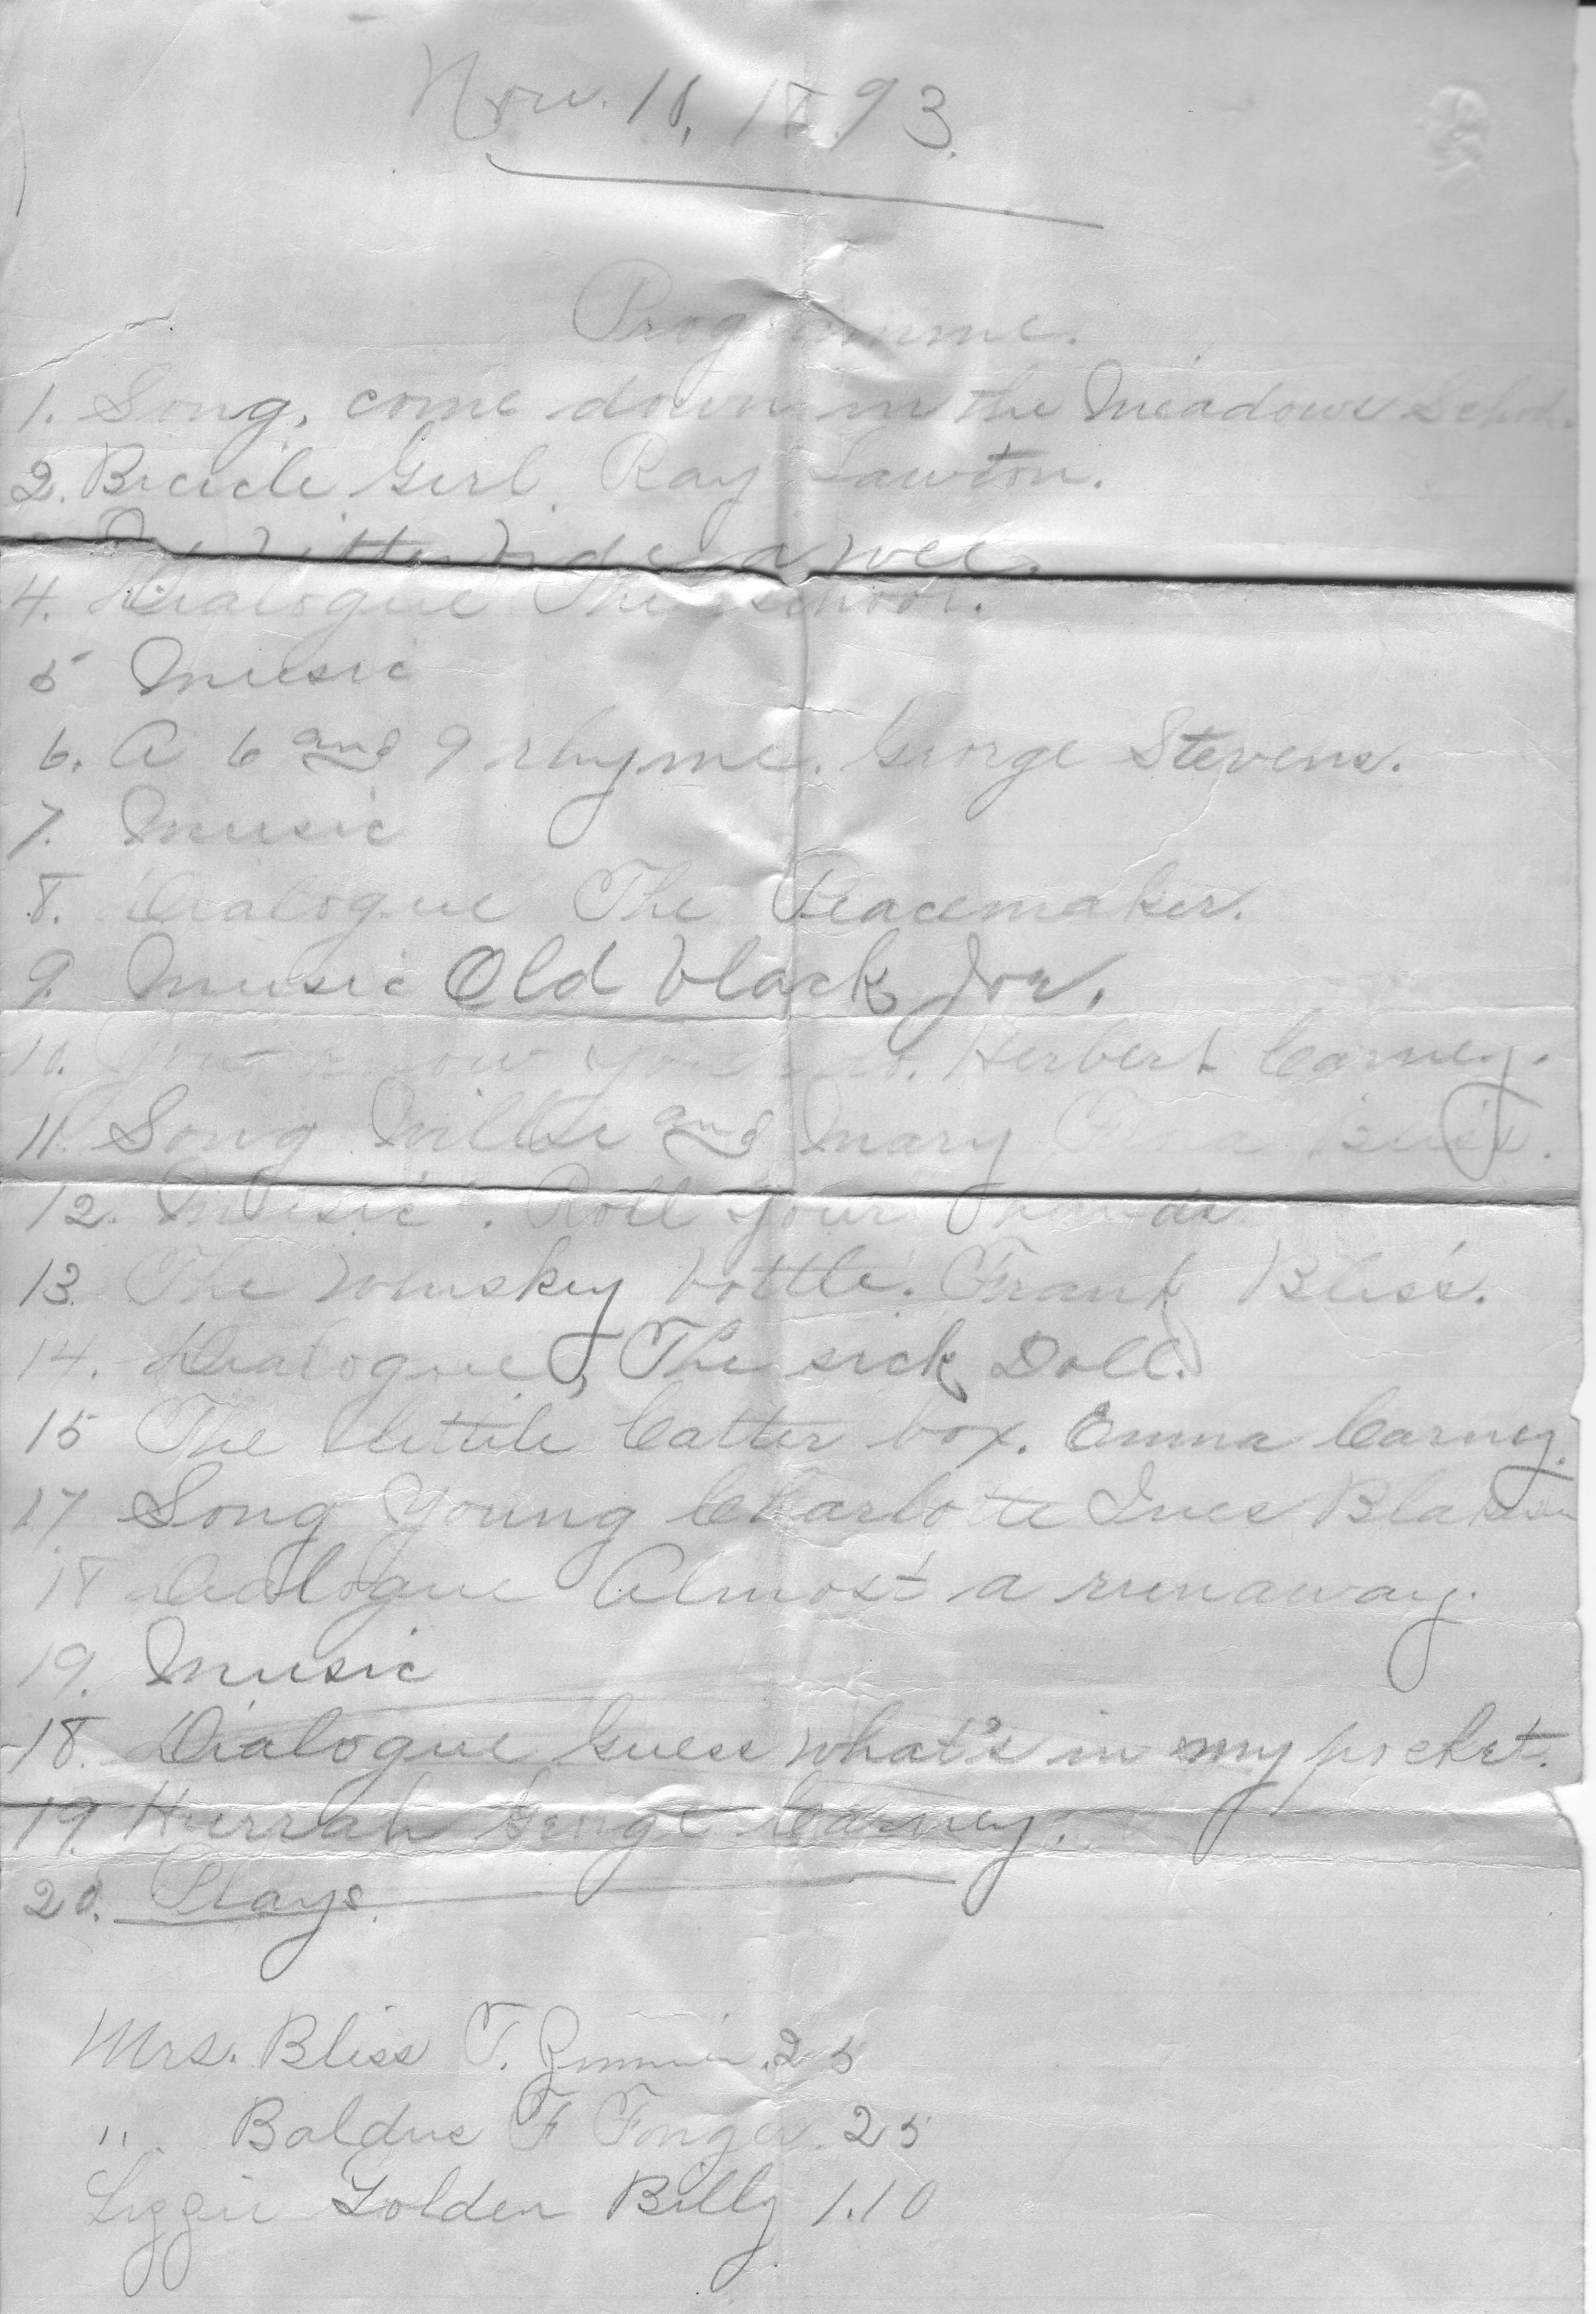 Nov. 18, 1893.
Programme.
1. Song, come down in the Meadows School.
2. Bicicle Girl. Ray Lawton.
a wee.
4. Dialogue The school.
5 Music
6. A 6 and 9 rhyme. George Stevens.
7. Music
8. Dialogue The Peacemaker.
9. Music Old black Joe.
10. Herbert Carney.
11. Song Willie and Mary Bliss.
12. Music. Roll your hands
13. The whuskey bottle. Frank Bliss.
14. Dialogue, The sick Doll.
15 The little Catter box. Emma Carney.
17. Song Young Charlotte Ines
18 Dialogue Almost a runaway.
19. Music
18. Dialogue Guess what's in my pocket.
19. Hurrah George Carney.
20. Plays.
Mrs. Bliss T. .25
" Baldus F .25
Lizzie Golden Billy 1.10